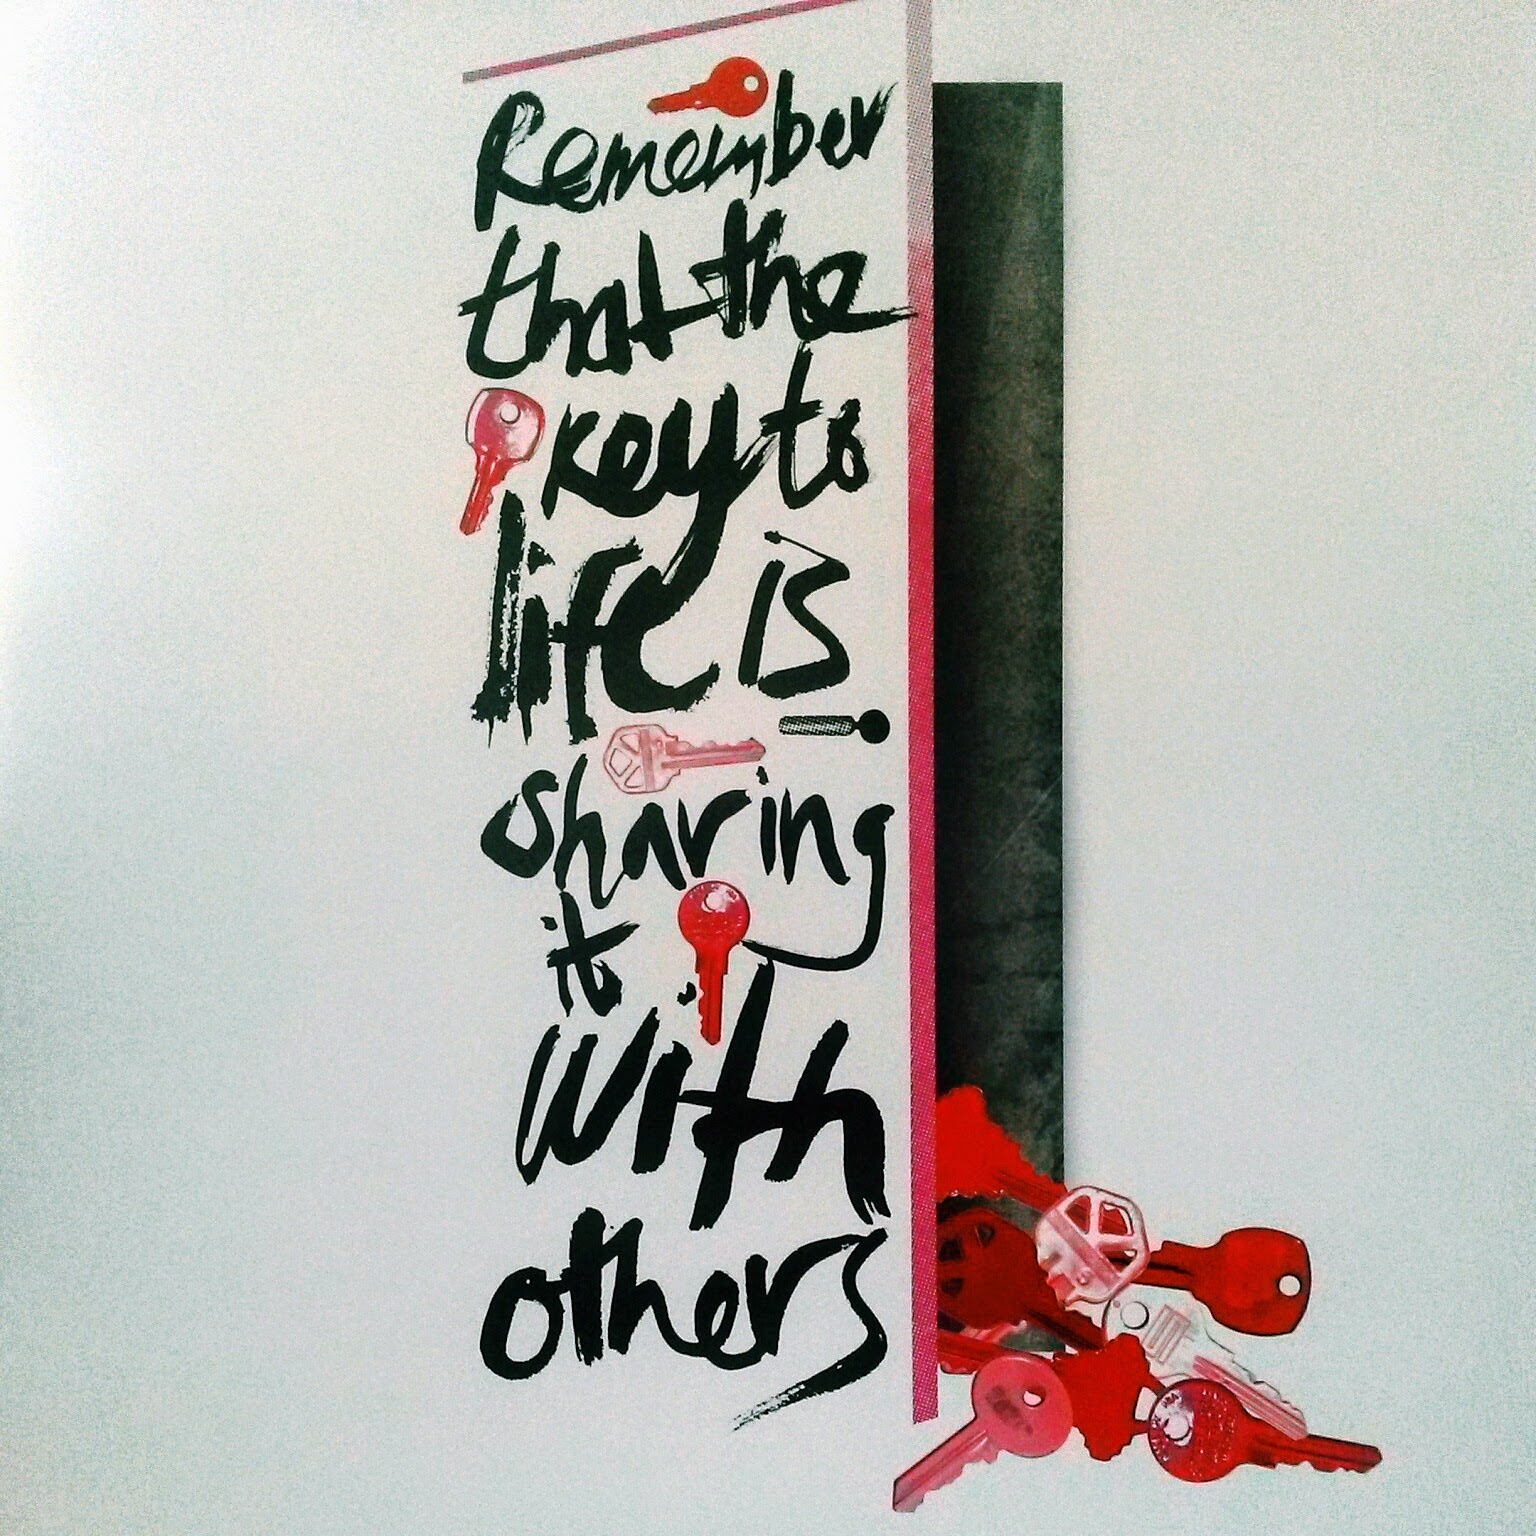 Remember
that the
key to
life is
sharing
it
with
others